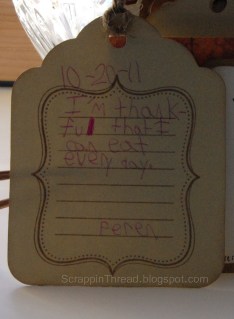 10-20-11
I'm thank-
ful that I
can eat
every day.
ScrappinThread.blogspot.com